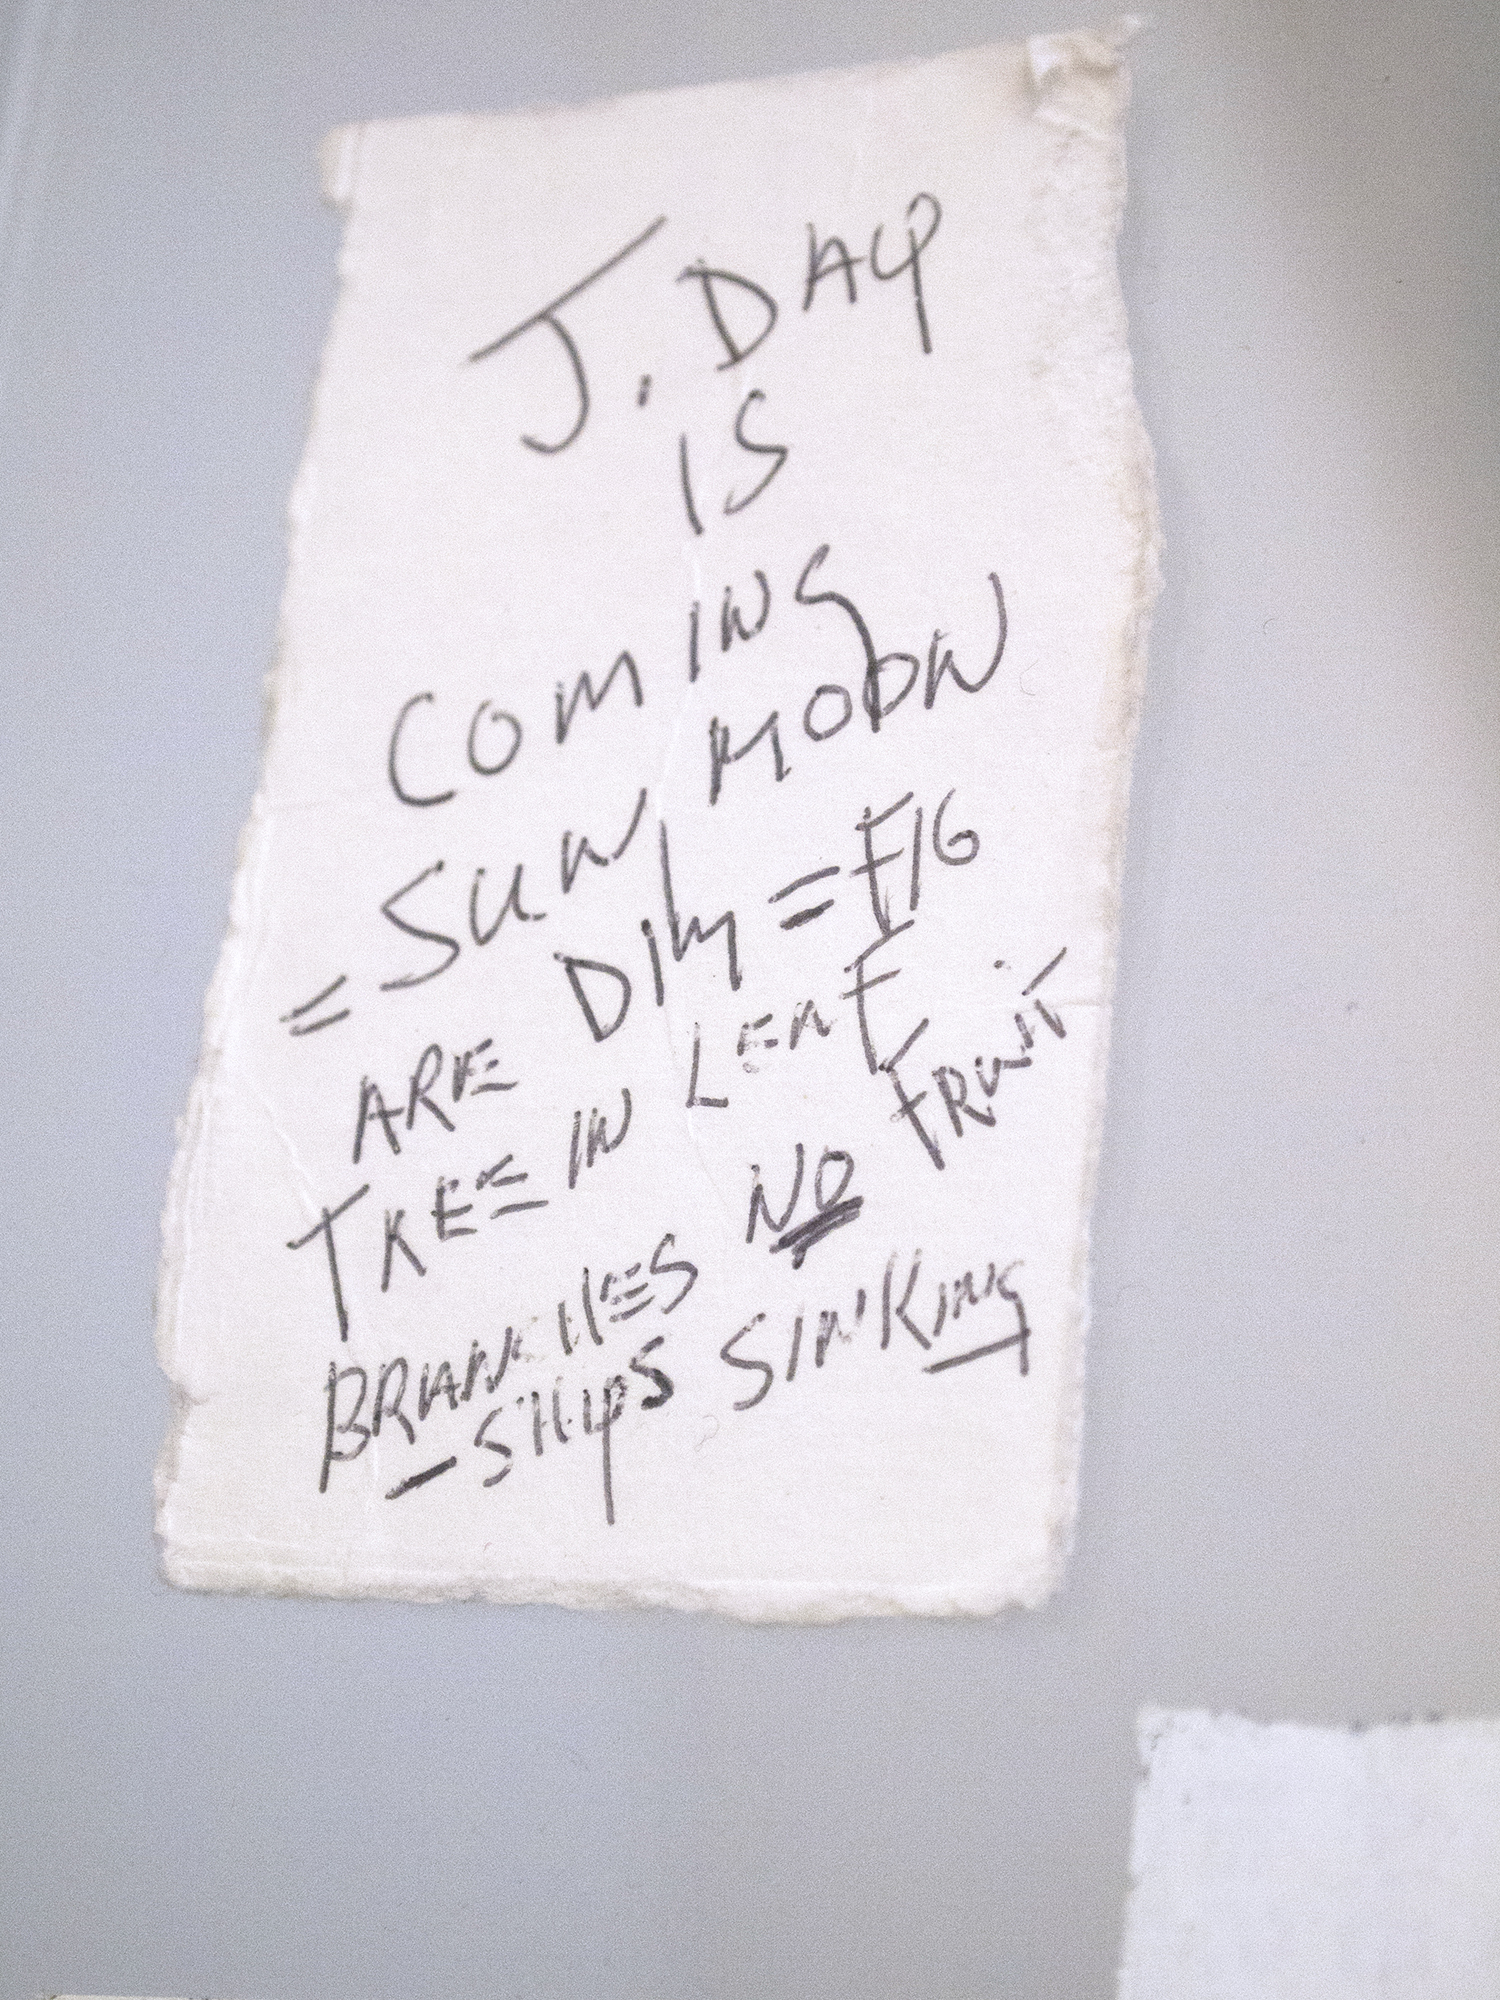 J. DAY
IS
COMING
= SUN MOON
ARE DIM = FIG
TREE IN LEAF
BRANCHES NO FRUIT
- SHIPS SINKING